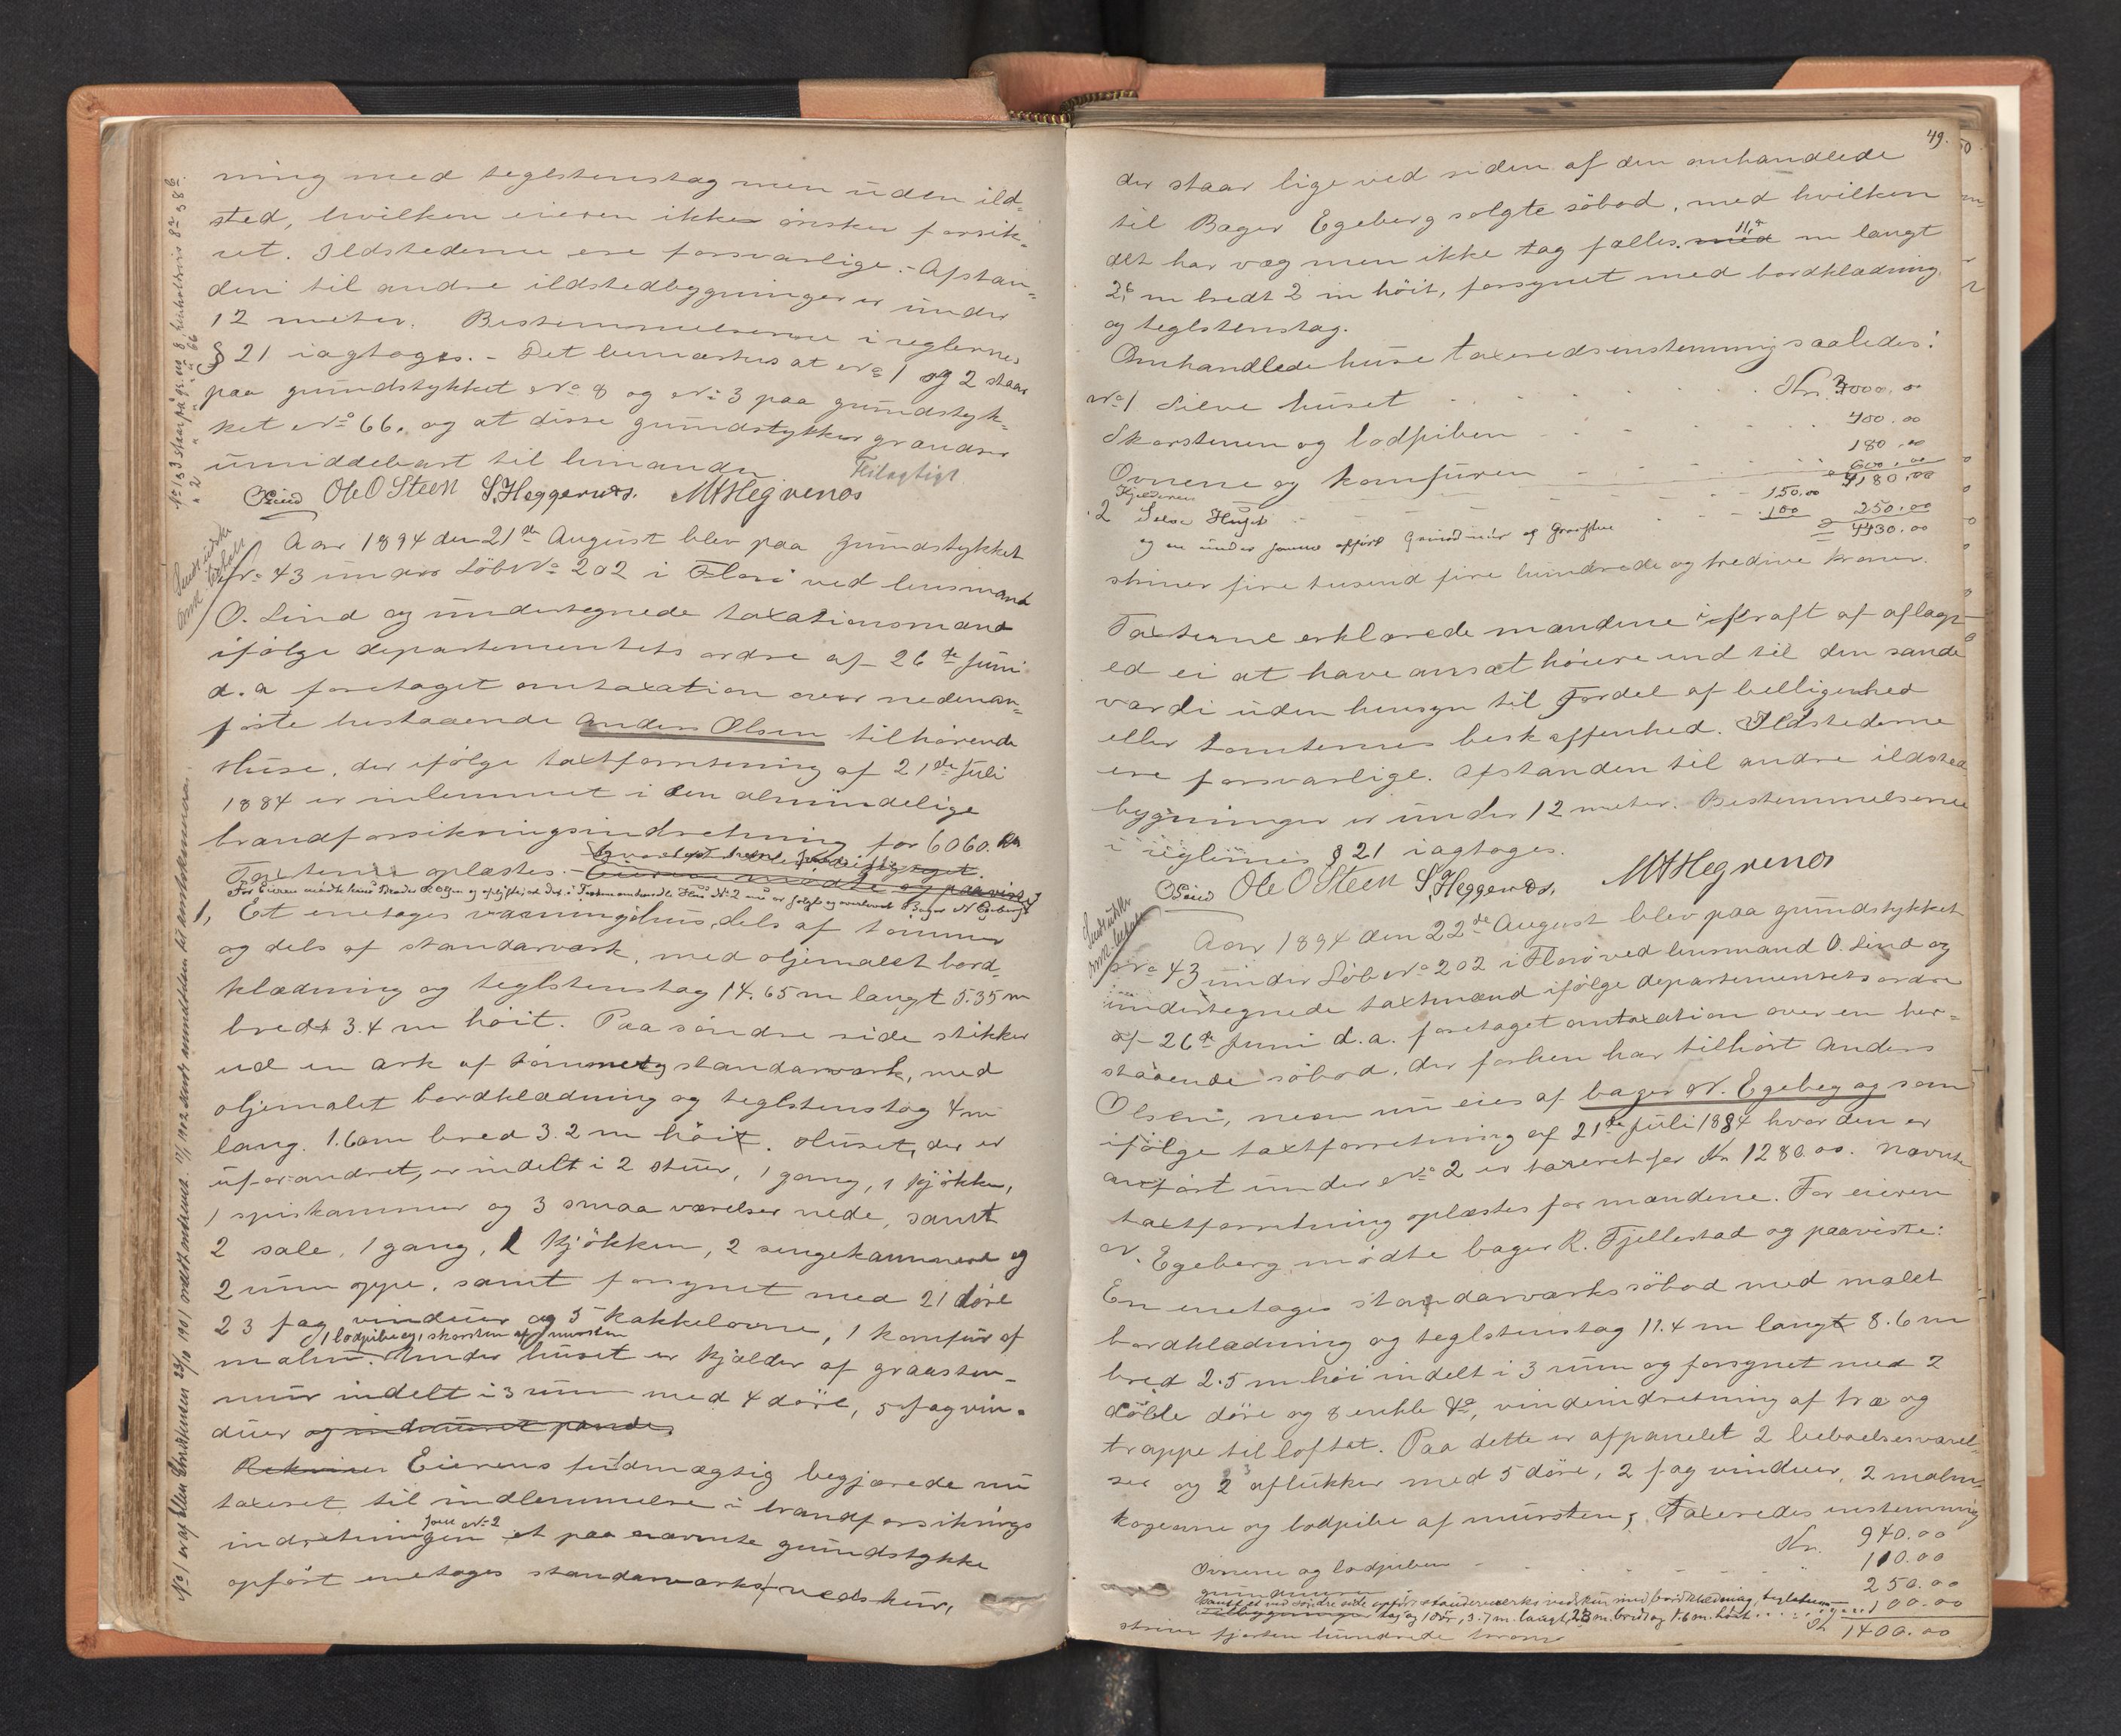 ning med teglstenstag men uden ild-
sted, hvilken eieren ikke ønsker forsik-
ret. Ildstederne ere forsvarlige. - Afstan-
den til andre ildstedbygninger er under
12 meter. Bestemmelserne i reglernes
§ 21 iagtoges. - Det bemærkes at No 1 og 2 staar
paa grundstykket No 8 og No 3 paa grundstyk-
ket No 66, og at disse grundstykker grændser
umiddelbart til hinanden
OLind Ole O Steen S. Heggenæs. MHHegrenæs
Aar 1894 den 21de August blev paa grundstykket
No 43 under Løb No 202 i Florø ved lensmand
O. Lind og undertegnede taxationsmænd
ifølge departementets ordre af 26de Juni
d. a foretaget omtaxation over nedenan-
førte bestaaende Anders Olsen tilhørende
Huse, der ifølge taxtforretning af 21de Juli
1884 er indlemmet i den almindelige
brandforsikringsindretning for 6060. Kr
Taxtens oplæstes. - Eieren mødte og paaviste:
For Eieren mødte hans Broder R. Olsen og oplyste, at det i Taxten omhandlede Hus No 2 nu er solgt og overleveret Bager N Egeberg
1, Et enetages vaaningshus, dels af tømmer
og dels af standarværk, med oljemalet bord-
klædning og teglstenstag 14.65 m langt 5.35 m
bredt 3.4 m høit. Paa søndre side stikker
ud en ark af tømmer og standarværk, med
oljemalet bordklædning og teglstenstag 4 m
lang. 1.60m bred 3.2 m høit. Huset, der er
uforandret, er indelt i 2 stuer, 1 gang, 1 kjøkken,
1 spiskammer og 3 smaa værelser nede, samt
2 sale, 1 gang, 1 kjøkken, 2 sengekammere og
2 rum oppe, samt forsynet med 21 døre
23 fag vinduer og 5 kakkelovne, 1 komfur af
1 lodpibe og 1 skorsten af mursten
malm. Under huset er kjælder af graasten-
mur indelt i 3 rum med 4 døre, 5 fag vin-
duer og indmuret pande.
Eierens fuldmægtig begjærede nu
taxeret til indlemmelse i brandforsikrings
indretningen som No 2 et paa nævnte grundstykke
opført enetages standarværks vedskur,
49.
der staar lige ved siden af den omhandlede
til Bager Egeberg solgte søbod, med hvilken
det har væg men ikke tag fælles. 11,4 m langt
2,6 m bredt 2 m høit, forsynet med bordklædning
og teglstenstag.
Omhandlede huse taxeredes enstemmig saaledes:
No 1 Selve huset Kr. 3000.00
Skorstenen og lodpiben 400.00
Ovnene og komfuren 180.00
Kjelderen 600.00
4180.00
2 Selve Huset 150.00
og en under samme opført Grundmur af Graasten 100 250.00
4430.00
skriver fire tusend fire hundrede og tredive kroner.
Taxterne erklærede mændene i kraft af aflagt
ed ei at have ansat høiere end til den sande
værdi uden hensyn til Fordel af beliggenhed
eller tomternes beskaffenhed. Ildstederne
ere forsvarlige. Afstanden til andre ildsted
bygninger er under 12 meter. Bestemmelserne
i reglernes § 21 iagtoges.
OLind Ole O Steen S. Heggenæs. MHHegrenæs
Aar 1894 den 22de August blev paa grundstykket
No 43 under Løb No 202 i Florø ved lensmand O. Lind og
undertegnede taxtmænd ifølge departementets ordre
af 26de Juni d. a. foretaget omtaxation over en her-
staaende søbod, der forhen har tilhørt Anders
Olsen, men nu eies af bager N. Egeberg og som
ifølge taxtforretning af 21de Juli 1884 hvor den er
anført under No 2 er taxeret for Kr 1280.00. Nævnte
taxtforretning oplæstes for mændene. For eieren
N. Egeberg mødte bager R. Fjellestad og paaviste:
En enetages standarværks søbod med malet
bordklædning og teglstenstag 11.4 m langt 8.6 m
bred 2.5 m høi indelt i 3 rum og forsynet med 2
doble døre og 8 enkle do, vindeindretning af træ og
trappe til loftet. Paa dette er afpanelet 2 beboelsesværel-
ser og 2 aflukker med 5 døre, 2 fag vinduer, 2 malm-
kogeovne og lodpibe af mursten, Taxeredes enstemmig
Kr. 940.00
Ovnene og lodpiben 110.00
grundmuren 250.00
samt et ved søndre side opført standerværks vedskur med bordklædning, teglstens-
tag og 1 dør, 3.7 m. langt, 2.3 m. bredt og 1.6 m. høit 100.00
Kr 1400.00
skriver fjorten hundrede kroner